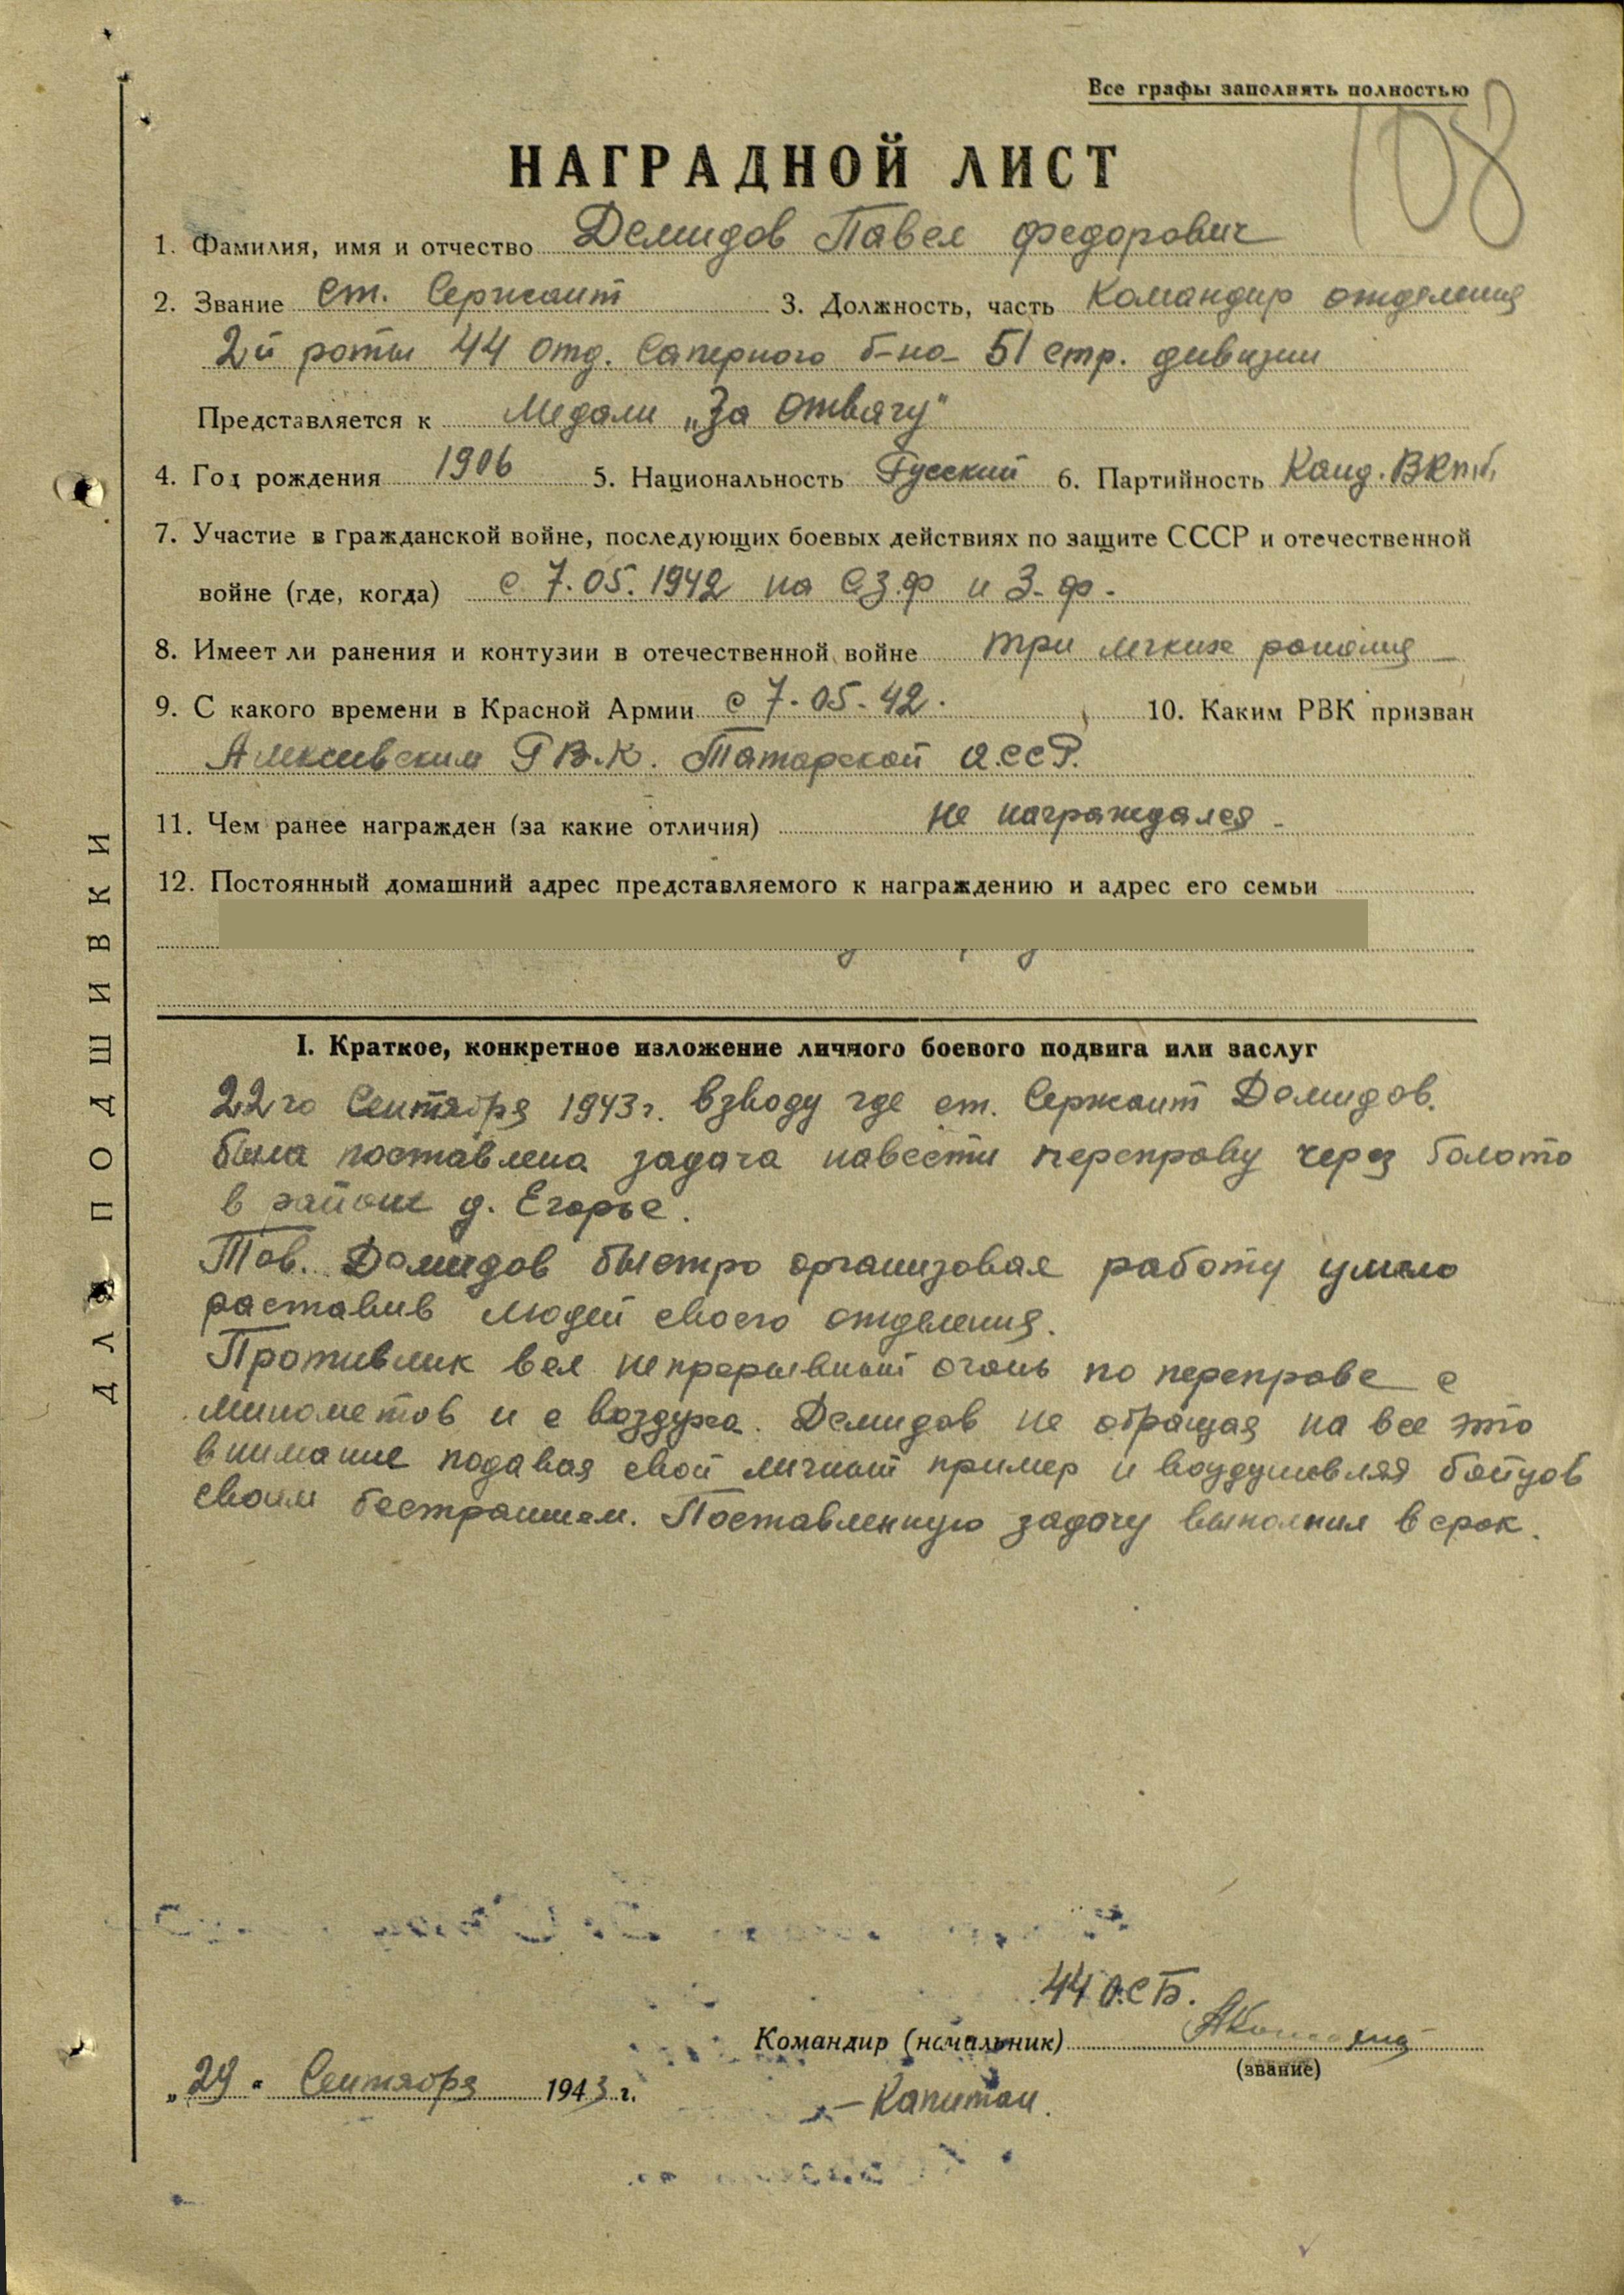 Все графы заполнять полностью
108
НАГРАДНОЙ ЛИСТ
1. Фамилия, имя и отчество Демидов Павел Федорович
2. Звание ст. Сержант 3. Должность, часть Командир отделения
2й роты 44 отд. Саперного б-на 51 стр. дивизии
Представляется к Медали „За Отвагу"
4. Год рождения 1906 5. Национальность Русский 6. Партийность Канд. ВКПб,
7. Участие в гражданской войне, последующих боевых действиях по защите СССР и отечественной
войне (где, когда) с 7.05.1942 на С.З.Ф и З.ф.
8. Имеет ли ранения и контузии в отечественной войне три легких ранения
9. С какого времени в Красной Армии с 7-05-42. 10. Каким РВК призван
Алексеевским Р.В.К. Татарской А.ССР.
11. Чем ранее награжден (за какие отличия) не награждался -
12. Постоянный домашний адрес представляемого к награждению и адрес его семьи
I. Краткое, конкретное изложение личного боевого подвига или заслуг
22го Сентября 1943г. взводу где ст. Сержант Демидов.
была поставлена задача навести переправу через болото
в районе д. Егорье.
Тов. Демидов быстро организовал работу умело
раставив людей своего отделения.
Противник вел непрерывный огонь по переправе с
минометов и с воздуха. Демидов не обращая на все это
внимание подавая свой личный пример и воудушевляя бойцов
своим бестрашием. Поставленную задачу выполнил в срок.
44 О.С.Б.
Командир (начальник)
(звание)
„29" Сентября 1943 г.
- Капитан.
ДЛЯ ПОДШИВКИ